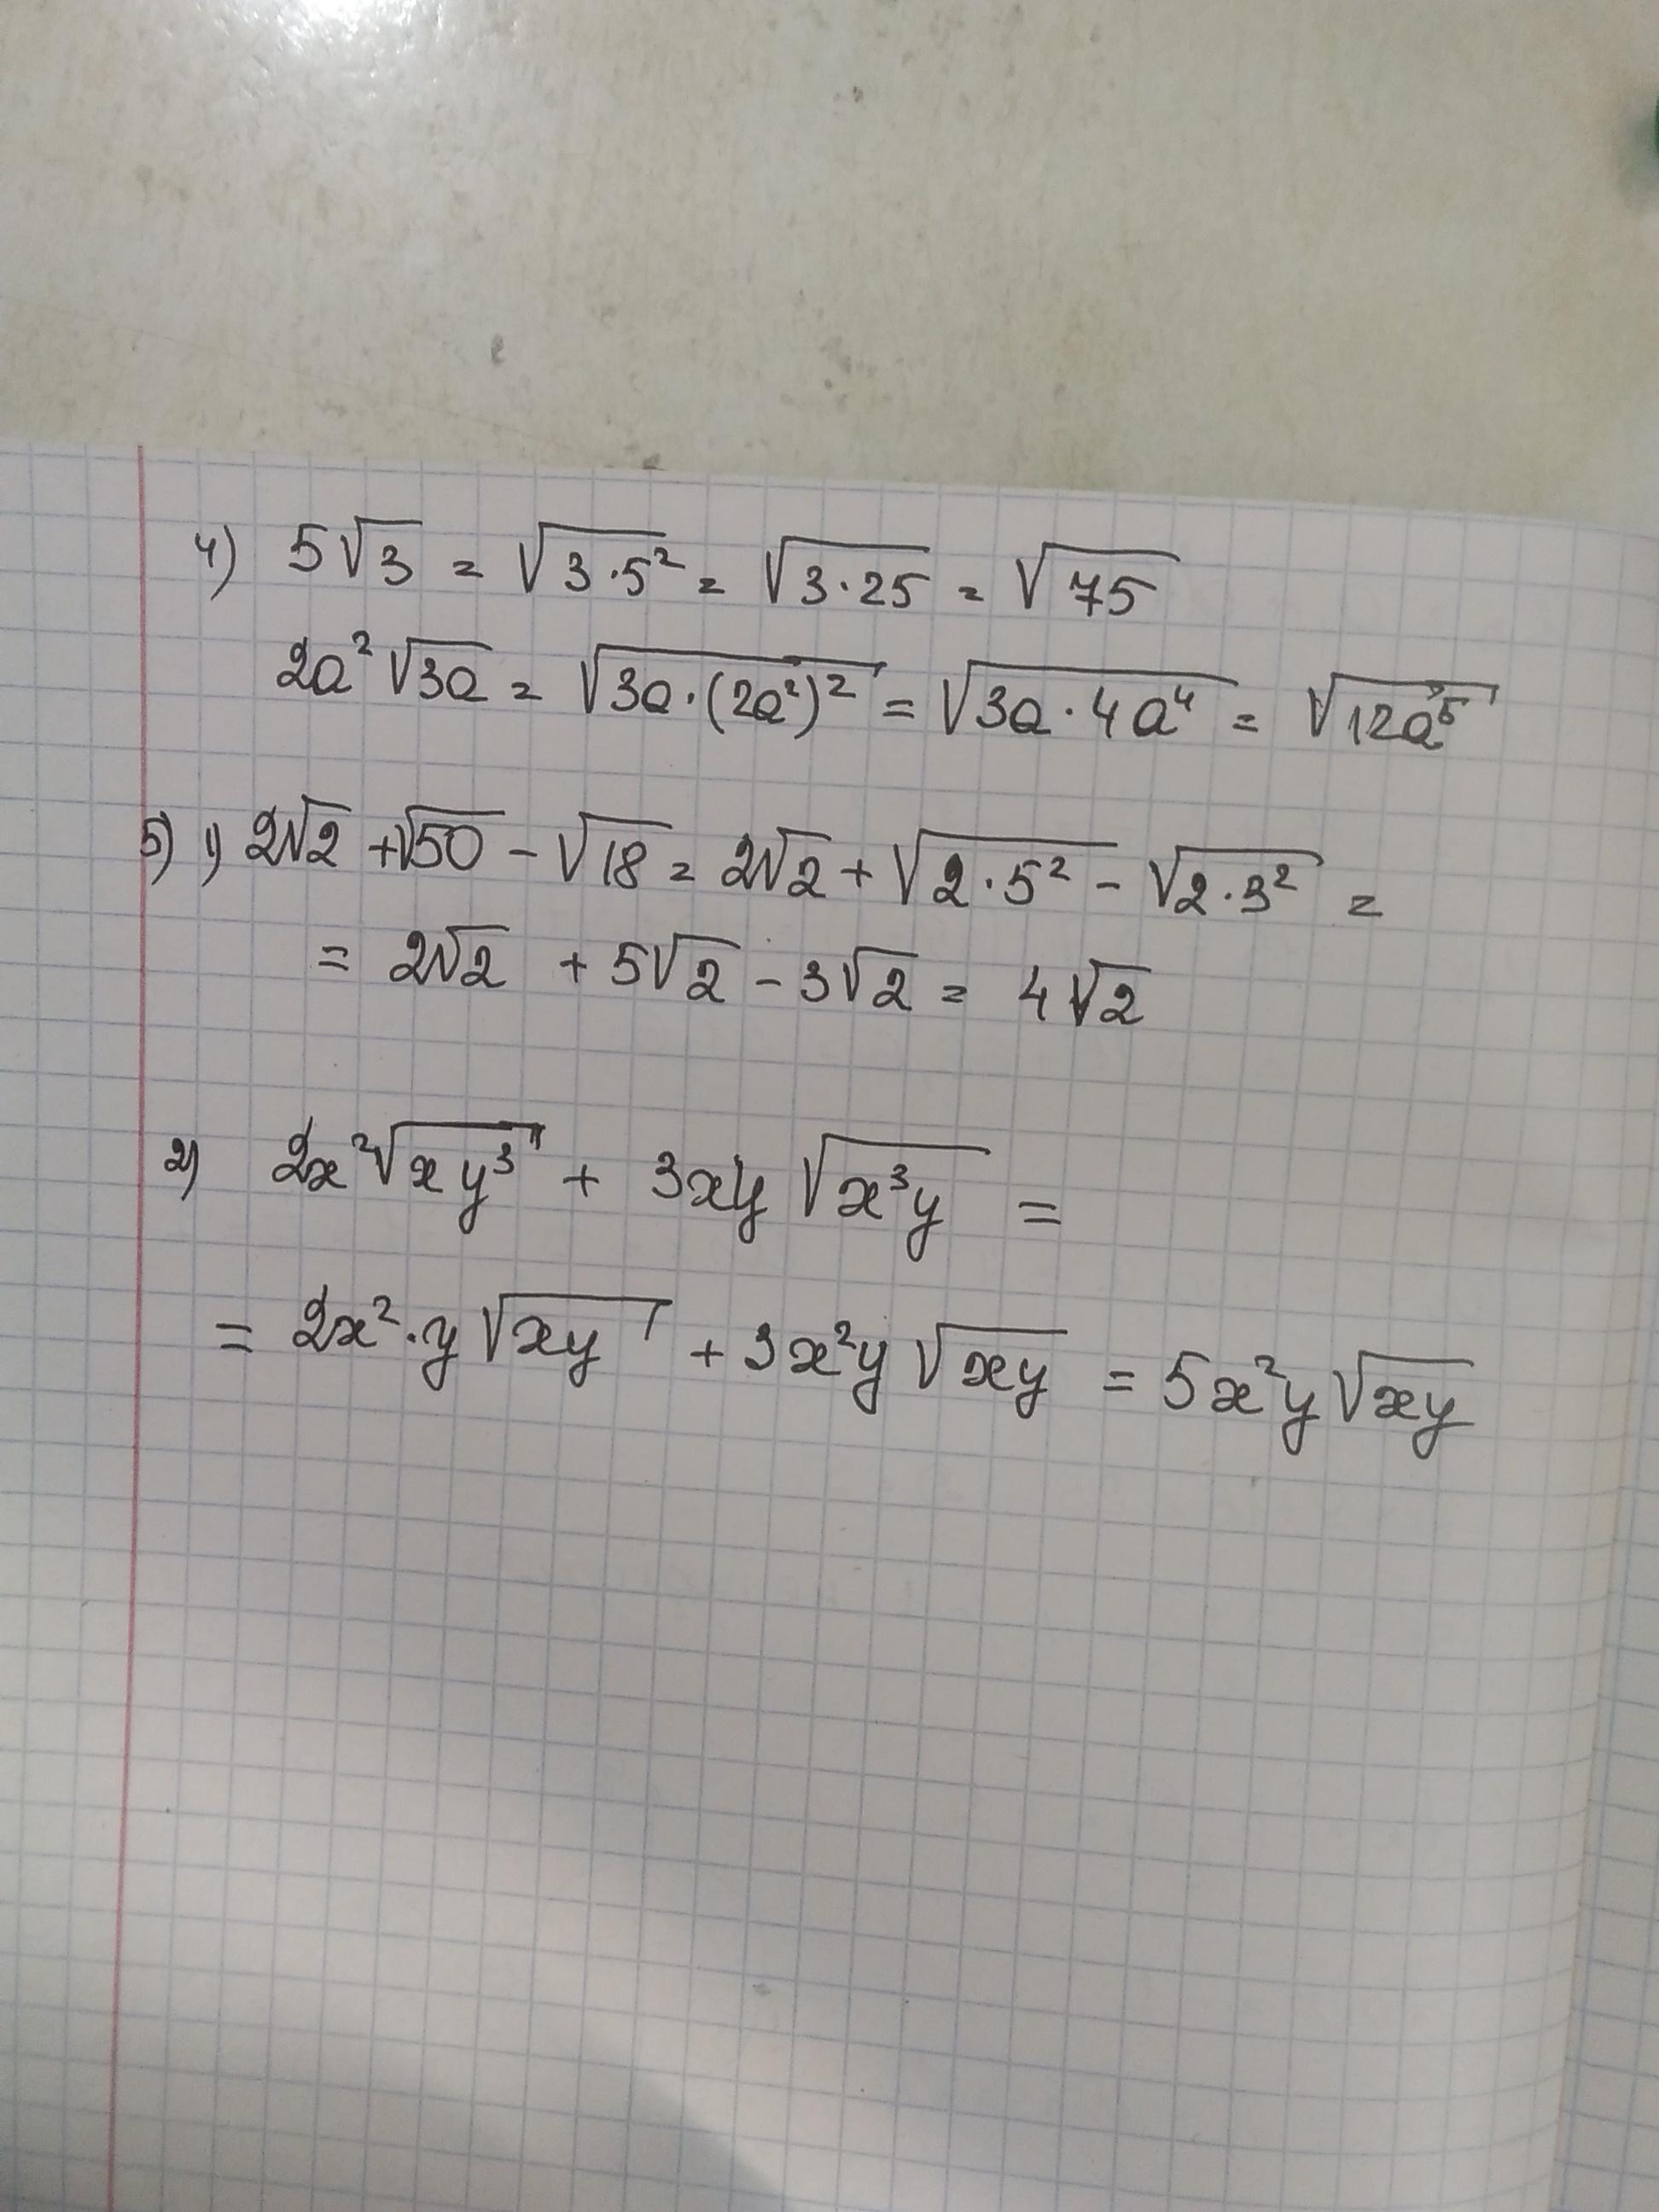 4) 5√3 = √(3·5²) = √(3·25) = √75
2a²√(3a) = √(3a·(2a²)²) = √(3a·4a⁴) = √(12a⁵)
5) 1) 2√2 + √50 - √18 = 2√2 + √(2·5²) - √(2·3²) =
= 2√2 + 5√2 - 3√2 = 4√2
2) 2x²√(xy³) + 3xy√(x³y) =
= 2x²·y√(xy) + 3x²y√(xy) = 5x²y√(xy)